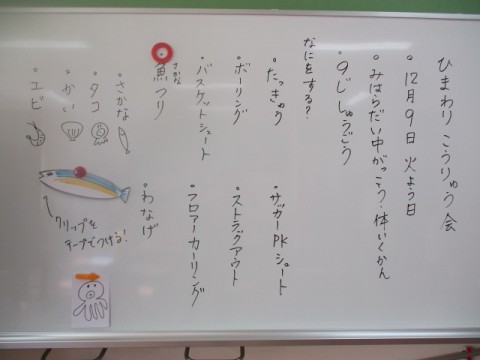 ひまわり こうりゅう会
・12月9日 火よう日
・みはらだい中がっこう・体いくかん
・9じ しゅうごう
なにをする?
・たっきゅう
・サッカーPKシュート
・ボーリング
・ストラックアウト
・バスケットシュート
・フロアーカーリング
・魚つり
さかな
・わなげ
・さかな
・タコ
・かい
・エビ
クリップを
テープでつける!